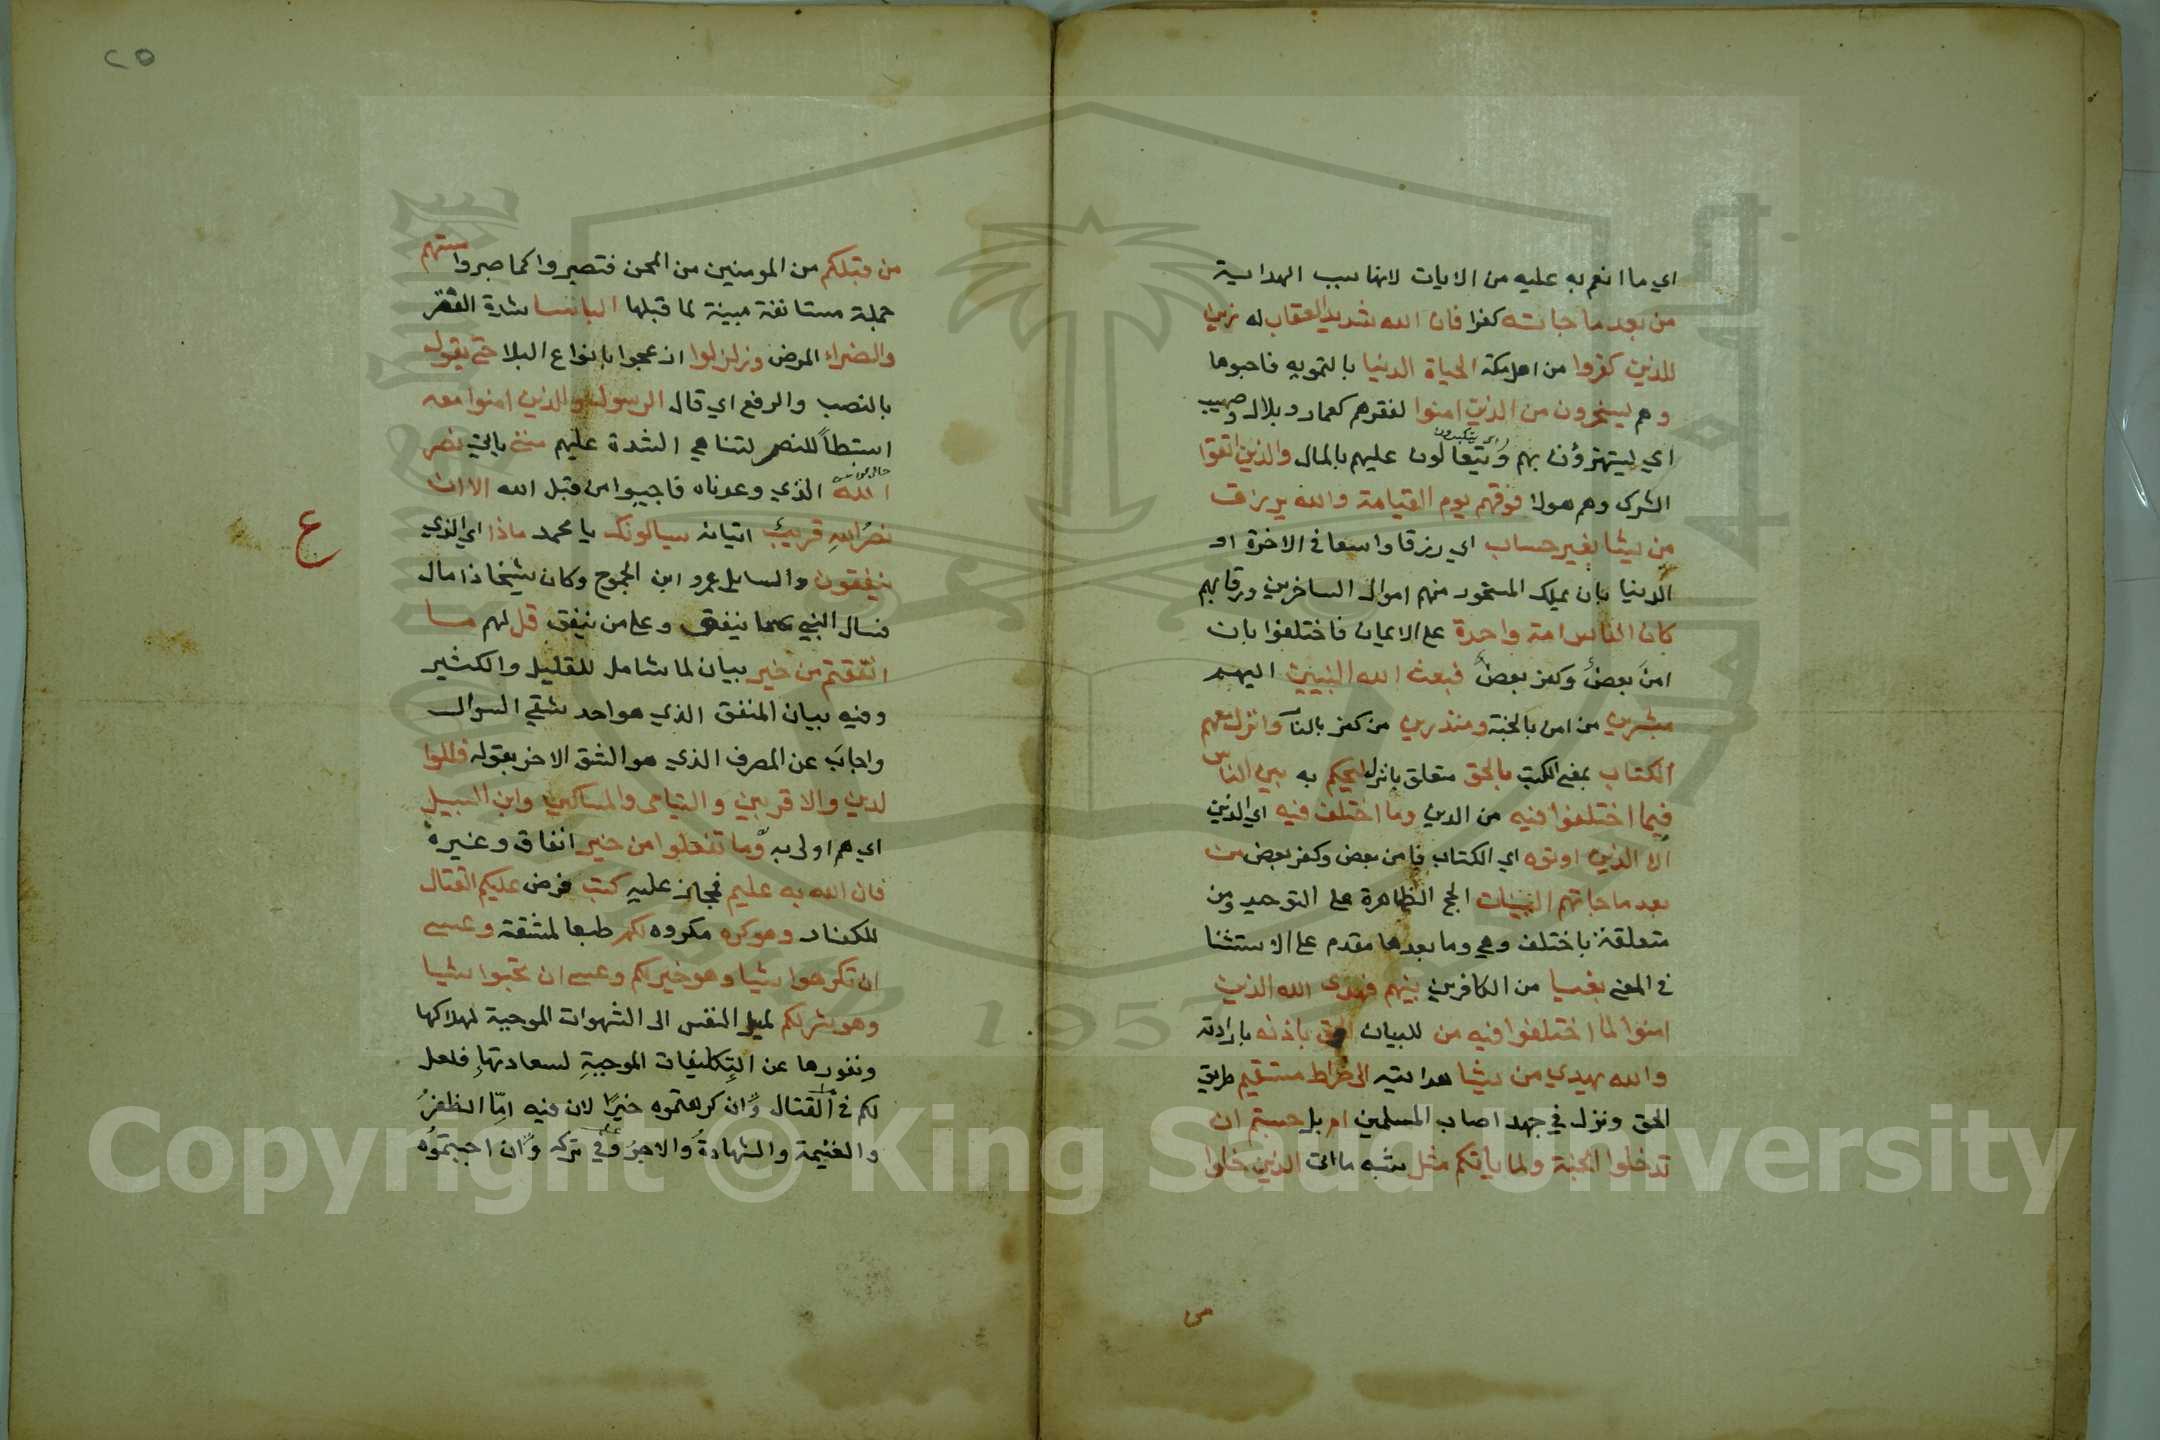 اي ما انعم به عليه من الايات لانها سبب الهداية
من بعد ما جاته كفرا فان الله شديد العقاب له زين
للذين كفروا من اهل مكة الحياة الدنيا بالتمويه فاحبوها
وهم يسخرون من الذين امنوا لفقرهم كعمار وبلال وصهيب
اي يستهزؤن بهم ويتعالون عليهم بالمال والذين اتقوا
اي يتكبرون
الشرك وهم هولا فوقهم يوم القيامة والله يرزق
من يشا بغير حساب اي رزقا واسعا في الاخرة او
الدنيا بان يملك المسخور منهم اموال الساخرين ورقابهم
كان الناس امة واحدة على الايمان فاختلفوا بان
امن بعض وكفر بعض فبعث الله النبيين اليهم
مبشرين من امن بالجنة ومنذرين من كفر بالنار وانزل معهم
الكتاب بمعنى الكتب بالحق متعلق بانزل ليحكم به بين الناس
فيما اختلفوا فيه من الدين وما اختلف فيه اي الدين
الا الذين اوتوه اي الكتاب فامن بعض وكفر بعض من
بعد ما جاتهم البينات الحجج الظاهرة على التوحيد ومن
متعلقة باختلف وهي وما بعدها مقدم على الاستثنا
في المعنى بغيا من الكافرين بينهم فهدى الله الذين
امنوا لما اختلفوا فيه من للبيان الحق باذنه بارادته
والله يهدي من يشا هدايته الى صراط مستقيم طريق
الحق ونزل في جهد اصاب المسلمين ام بل حسبتم ان
تدخلوا الجنة ولما ياتكم مثل شبه ما اتى الذين خلوا
من
٢٥
من قبلكم من المومنين من المحن فتصبروا كما صبروا مستهم
جملة مستانفة مبينة لما قبلها الباسا شدة الفقر
والضراء المرض وزلزلوا ازعجوا بانواع البلا حتى يقول
بالنصب والرفع اي قال الرسول والذين امنوا معه
استطأ للنصر لتناهي الشدة عليهم متى ياتي نصر
الله الذي وعدناه فاجيبوا من قبل الله الا ان
نصر الله قريب اتيانه يسالونك يا محمد ماذا اي الذي
ع
ينفقون والسايل عمرو ابن الجموح وكان شيخا ذا مال
فسال النبي عما ينفق وعلى من ينفق قل لهم ما
انفقتم من خير بيان لما شامل للقليل والكثير
وفيه بيان المنفق الذي هو احد شقي السوال
واجاب عن المصرف الذي هو الشق الاخر بقوله فللوا
لدين والاقربين واليتامى والمساكين وابن السبيل
اي هم اولى به وما تفعلوا من خير انفاق وغيره
فان الله به عليم فمجاز عليه كتب فرض عليكم القتال
للكفار وهو كره مكروه لكم طبعا لمشقة وعسى
ان تكرهوا شيا وهو خير لكم وعسى ان تحبوا شيا
وهو شر لكم لميل النفس الى الشهوات الموجبة لهلاكها
ونفورها عن التكليفات الموجبة لسعادتها فلعل
لكم في القتال وان كرهتموه خيرا لان فيه اما الظفر
والغنيمة والشهادة والاجر وفي تركه وان احببتموه
Copyright © King Saud University
1957